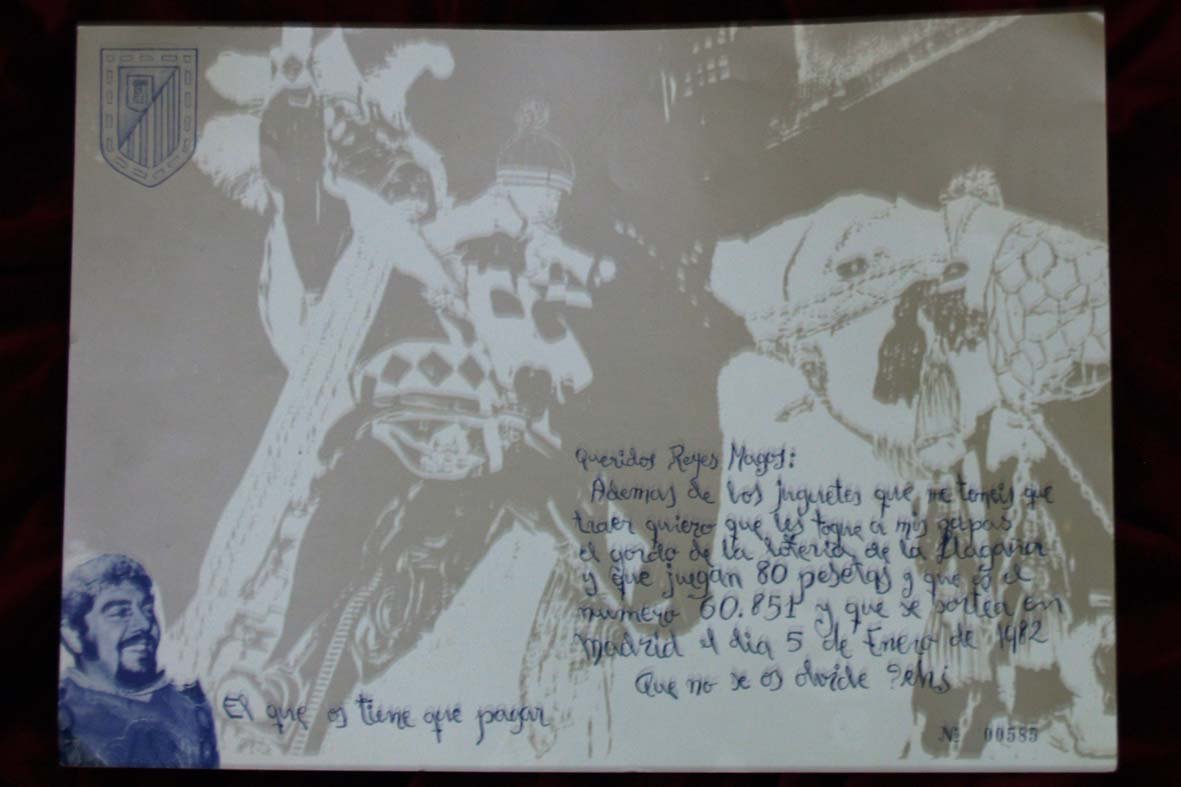 Queridos Reyes Magos:
Ademas de los juguetes que me teneis que
traer quiero que les toque a mis papas
el gordo de la loteria de la
y que juegan 80 pesetas y que es el
numero 60.851 y que se sortea en
Madrid el dia 5 de Enero de 1982
Que no se os olvide ?eh¡
El que os tiene que pagar
Nº 00585